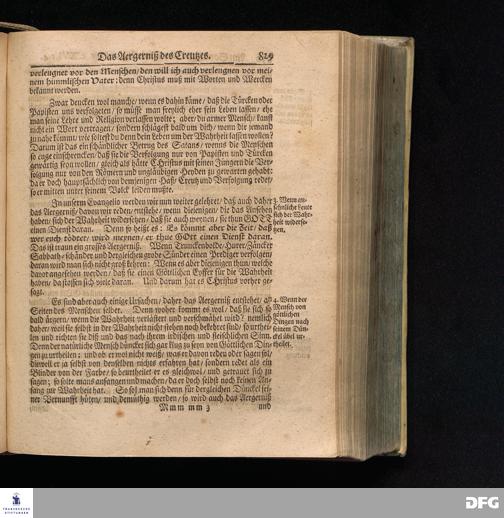 Das Aergerniß des Creutzes. 829
verleugnet vor den Menschen/ den will ich auch verleugnen vor mei-
nem himmlischen Vater: denn Christus muß mit Worten und Wercken
bekannt werden.
Zwar dencken wol manche/ wenn es dahin käme/ daß die Türcken oder
Papisten uns verfolgeten/ so müste man freylich eher sein Leben lassen/ ehe
man seine Lehre und Religion verlassen wolte; aber/ du armer Mensch/ kanst
nicht ein Wort vertragen/ sondern schlägest bald um dich/ wenn dir jemand
zu nahe kömmt/ wie soltest du denn dein Leben um der Wahrheit lassen wollen?
Darum ist das ein schändlicher Betrug des Satans/ womit die Menschen
so enge einschrencken/ daß sie die Verfolgung nur von Papisten und Türcken
gewärtig seyn wollen/ gleich als hätte Christus mit seinen Jüngern die Ver-
folgung nur von den Römern und ungläubigen Heyden zu gewarten gehabt:
da er doch hauptsächlich von demjenigen Haß/ Creutz und Verfolgung redet/
so er mitten unter seinem Volck leiden mußte.
In unserm Evangelio werden wir nun weiter gelehret/ daß auch daher
das Aergerniß/ davon wir reden/ entstehe/ wenn diejenigen/ die das Ansehen
haben/ sich der Wahrheit widersetzen/ daß sie auch meynen/ sie thun GOTT
einen Dienst daran. Denn so heißt es: Es kömmt aber die Zeit/ daß
wer euch tödtet/ wird meynen/ er thue GOtt einen Dienst daran.
Das ist traun ein grosses Aergerniß. Wenn Trunckenbolde/ Hurer/ Zäncker
Sabbath-schänder und dergleichen grobe Sünder einen Prediger verfolgen/
daran wird man sich nicht groß kehren: Wenn es aber diejenigen thun/ welche
davor angesehen werden/ daß sie einen Göttlichen Eyffer für die Wahrheit
haben/ da stossen sich viele daran. Und darum hat es Christus vorher ge-
sagt.
3. Wenn an-
sehnliche Leute
sich der Wahr-
heit widerse-
tzen.
Es sind aber auch einige Ursachen/ daher das Aergerniß entstehet/ als
Seiten des Menschen selber. Denn woher kommt es wol/ daß sie sich so
bald ärgern/ wenn die Wahrheit verlästert und verschmähet wird? nemlich
daher/ weil sie selbst in der Wahrheit nicht stehen noch bekehret sind/ so urthei-
len und richten sie diß und das nach ihrem irdischen und fleischlichen Sinn.
Denn der natürliche Mensch düncket sich gar klug zu seyn von Göttlichen Din-
gen zu urtheilen; und ob er wol nicht weiß/ was er davon reden oder sagen sol/
dieweil er ja selbst von denselben nichts erfahren hat/ sondern redet als ein
Blinder von der Farbe/ so beurtheilet er es gleichwol/ und getrauet sich zu
sagen; so solte mans anfangen und machen/ da er doch selbst noch keinen An-
fang zur Wahrheit hat. So seh man sich denn für dergleichen Dünckel sei-
ner Vernunfft hüten/ und demüthig werden/ so wird auch das Aergerniß
4. Wenn der
Mensch von
göttlichen
Dingen nach
seinem Dün-
ckel übel ur-
theilet.
Mmm mm 3 und
DFG